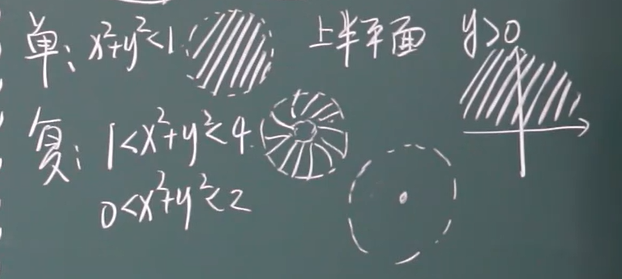 单: x²+y²<1 上半平面 y>0
复: 1<x²+y²<4
0<x²+y²<2